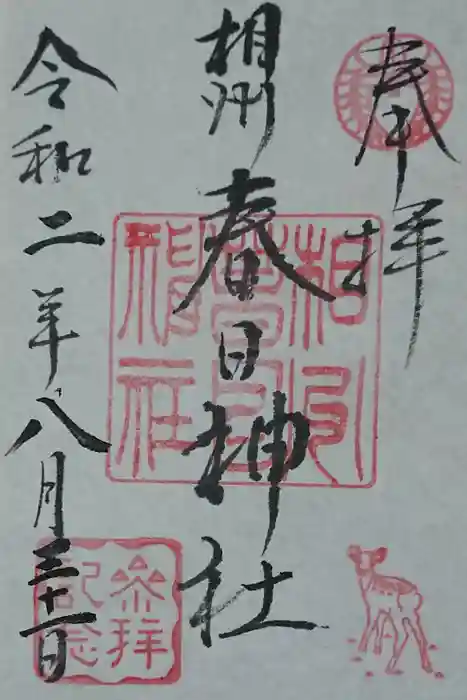 奉拝
相州
春日神社
令和二年八月三十一日
相州
春日
神社
参拝
記念